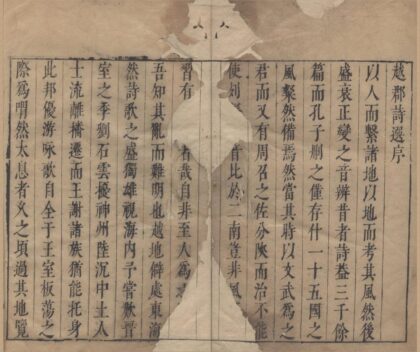 越郡詩選序
以人而繫諸地以地而考其風然後
盛衰正變之音辨昔者詩蓋三千餘
篇而孔子刪之僅存什一十五國之
風粲然備焉然當其時以文武為之
君而又有周召之佐分陝而治不能
使列 皆比於二南豈非風
習有 者哉自非至人為
吾知其亂而難明也越地僻處東海
然詩歌之盛獨雄視海內予嘗歎晉
室之季劉石雲擾神州陸沉中土人
士流離播遷而王謝諸族猶能托身
此邦優游咏歌自全于王室板蕩之
際為喟然太息者久之頃過其地覽